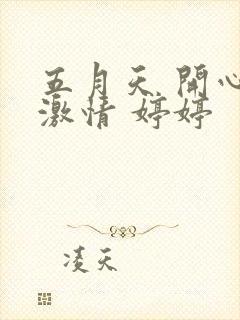 五月天 開心
激情 婷婷
凌天